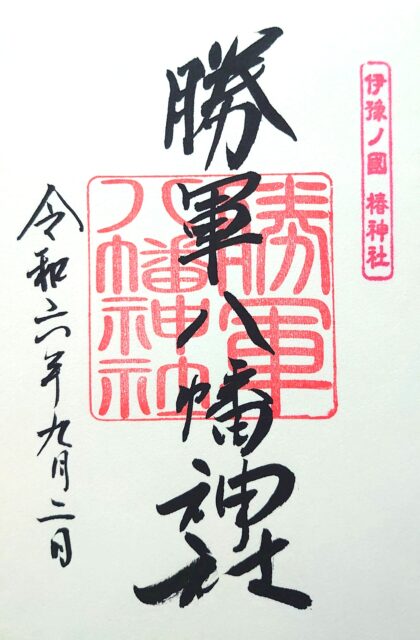 伊豫ノ國 椿神社
勝軍八幡神社
勝軍
八幡神社
令和六年九月二日